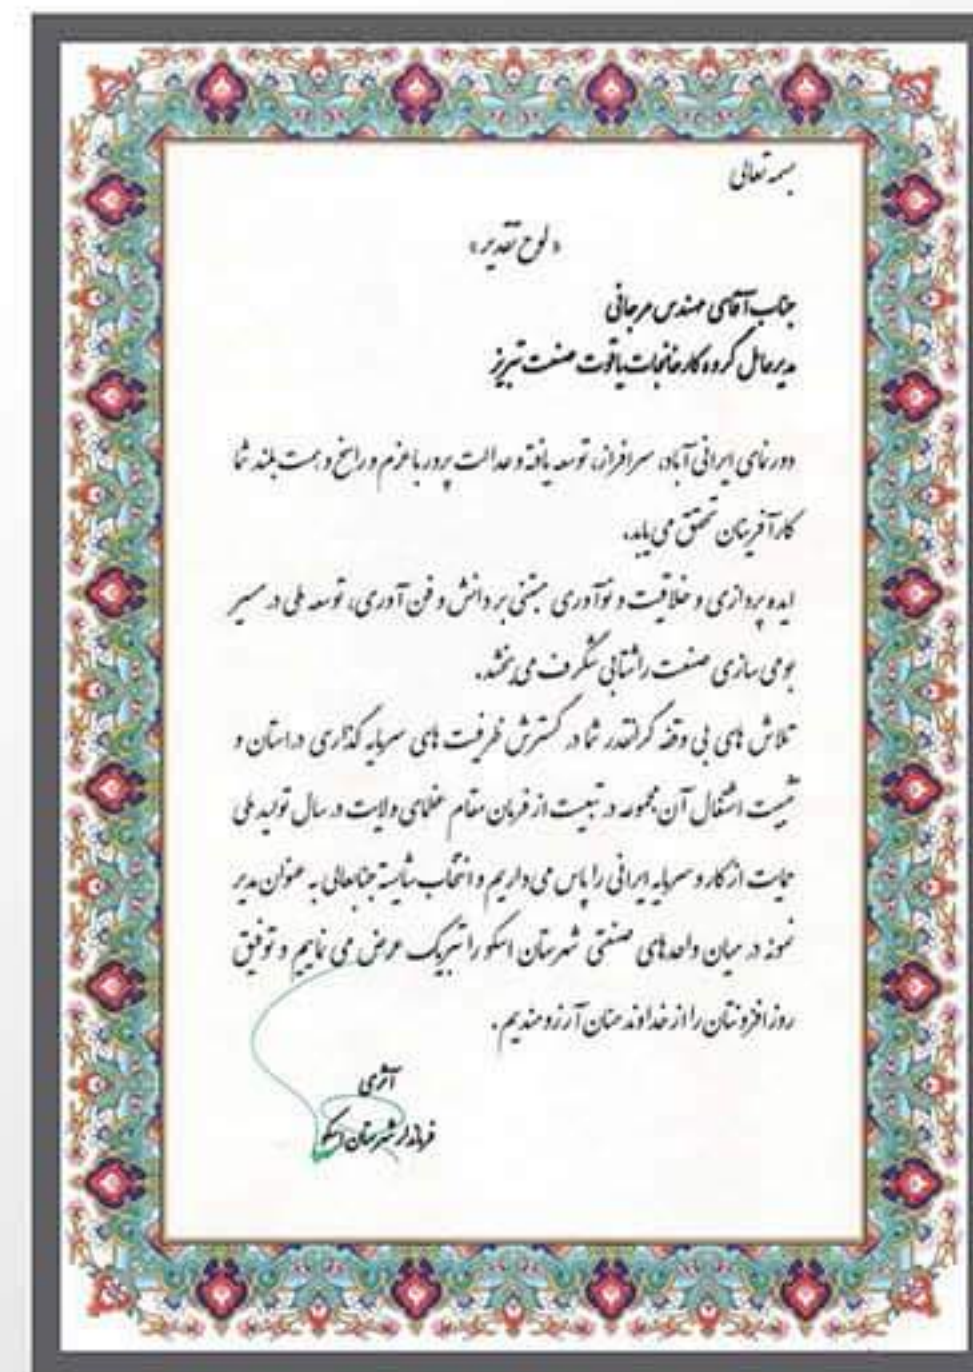 بسمه تعالی
« لوح تقدیر »
جناب آقای مهندس مرجانی
مدیرعامل گروه کارخانجات یاقوت صنعت تبریز
دورنمای ایرانی آباد، سرافراز، توسعه یافته و عدالت پرور با عزم و راسخ و همت بلند شما
کارآفرینان تحقق می یابد.
ایده پردازی و خلاقیت و نوآوری مبتنی بر دانش و فن آوری، توسعه ملی در مسیر
بومی سازی صنعت را شتابی شگرف می بخشد.
تلاش های بی وقفه گرانقدر شما در گسترش ظرفیت های سرمایه گذاری در استان و
تثبیت اشتغال آن مجموعه در تبعیت از فرمان مقام عظمای ولایت در سال تولید ملی
حمایت از کار و سرمایه ایرانی را پاس می داریم و انتخاب شایسته جنابعالی به عنوان مدیر
نمونه در میان واحدهای صنعتی شهرستان اسکو را تبریک عرض می نماییم و توفیق
روز افزونتان را از خداوند منان آرزومندیم.
فرماندار شهرستان اسکو